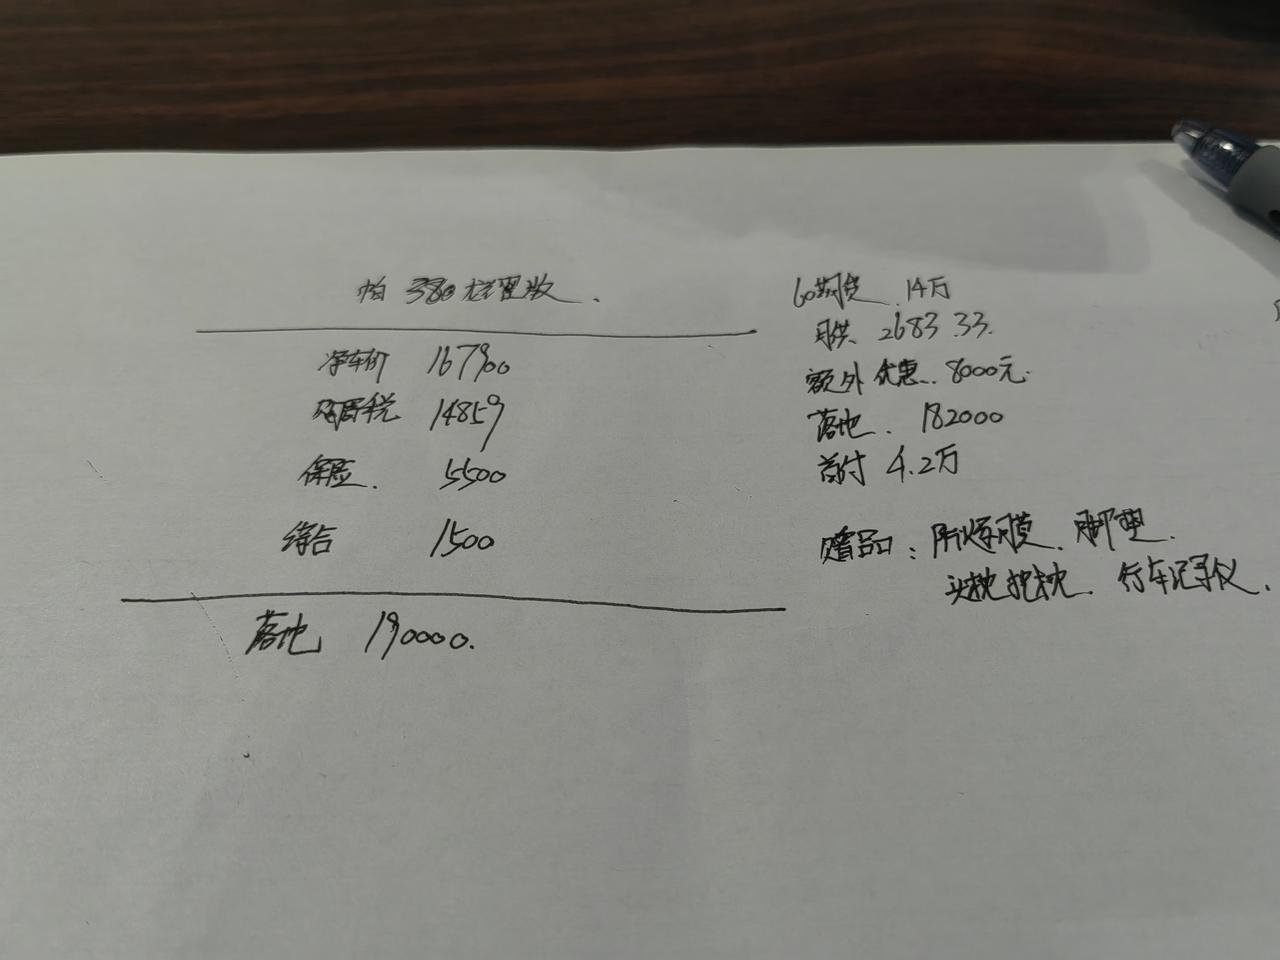 帕 380 龙耀版.
净车价 167900
购置税 14859
保险. 5500
综合 1500
落地 190000.
60期贷 14万
月供 2683.33.
额外优惠. 8000元.
落地. 182000
首付 4.2万
赠品: 防爆膜. 脚垫.
头枕抱枕. 行车记录仪.